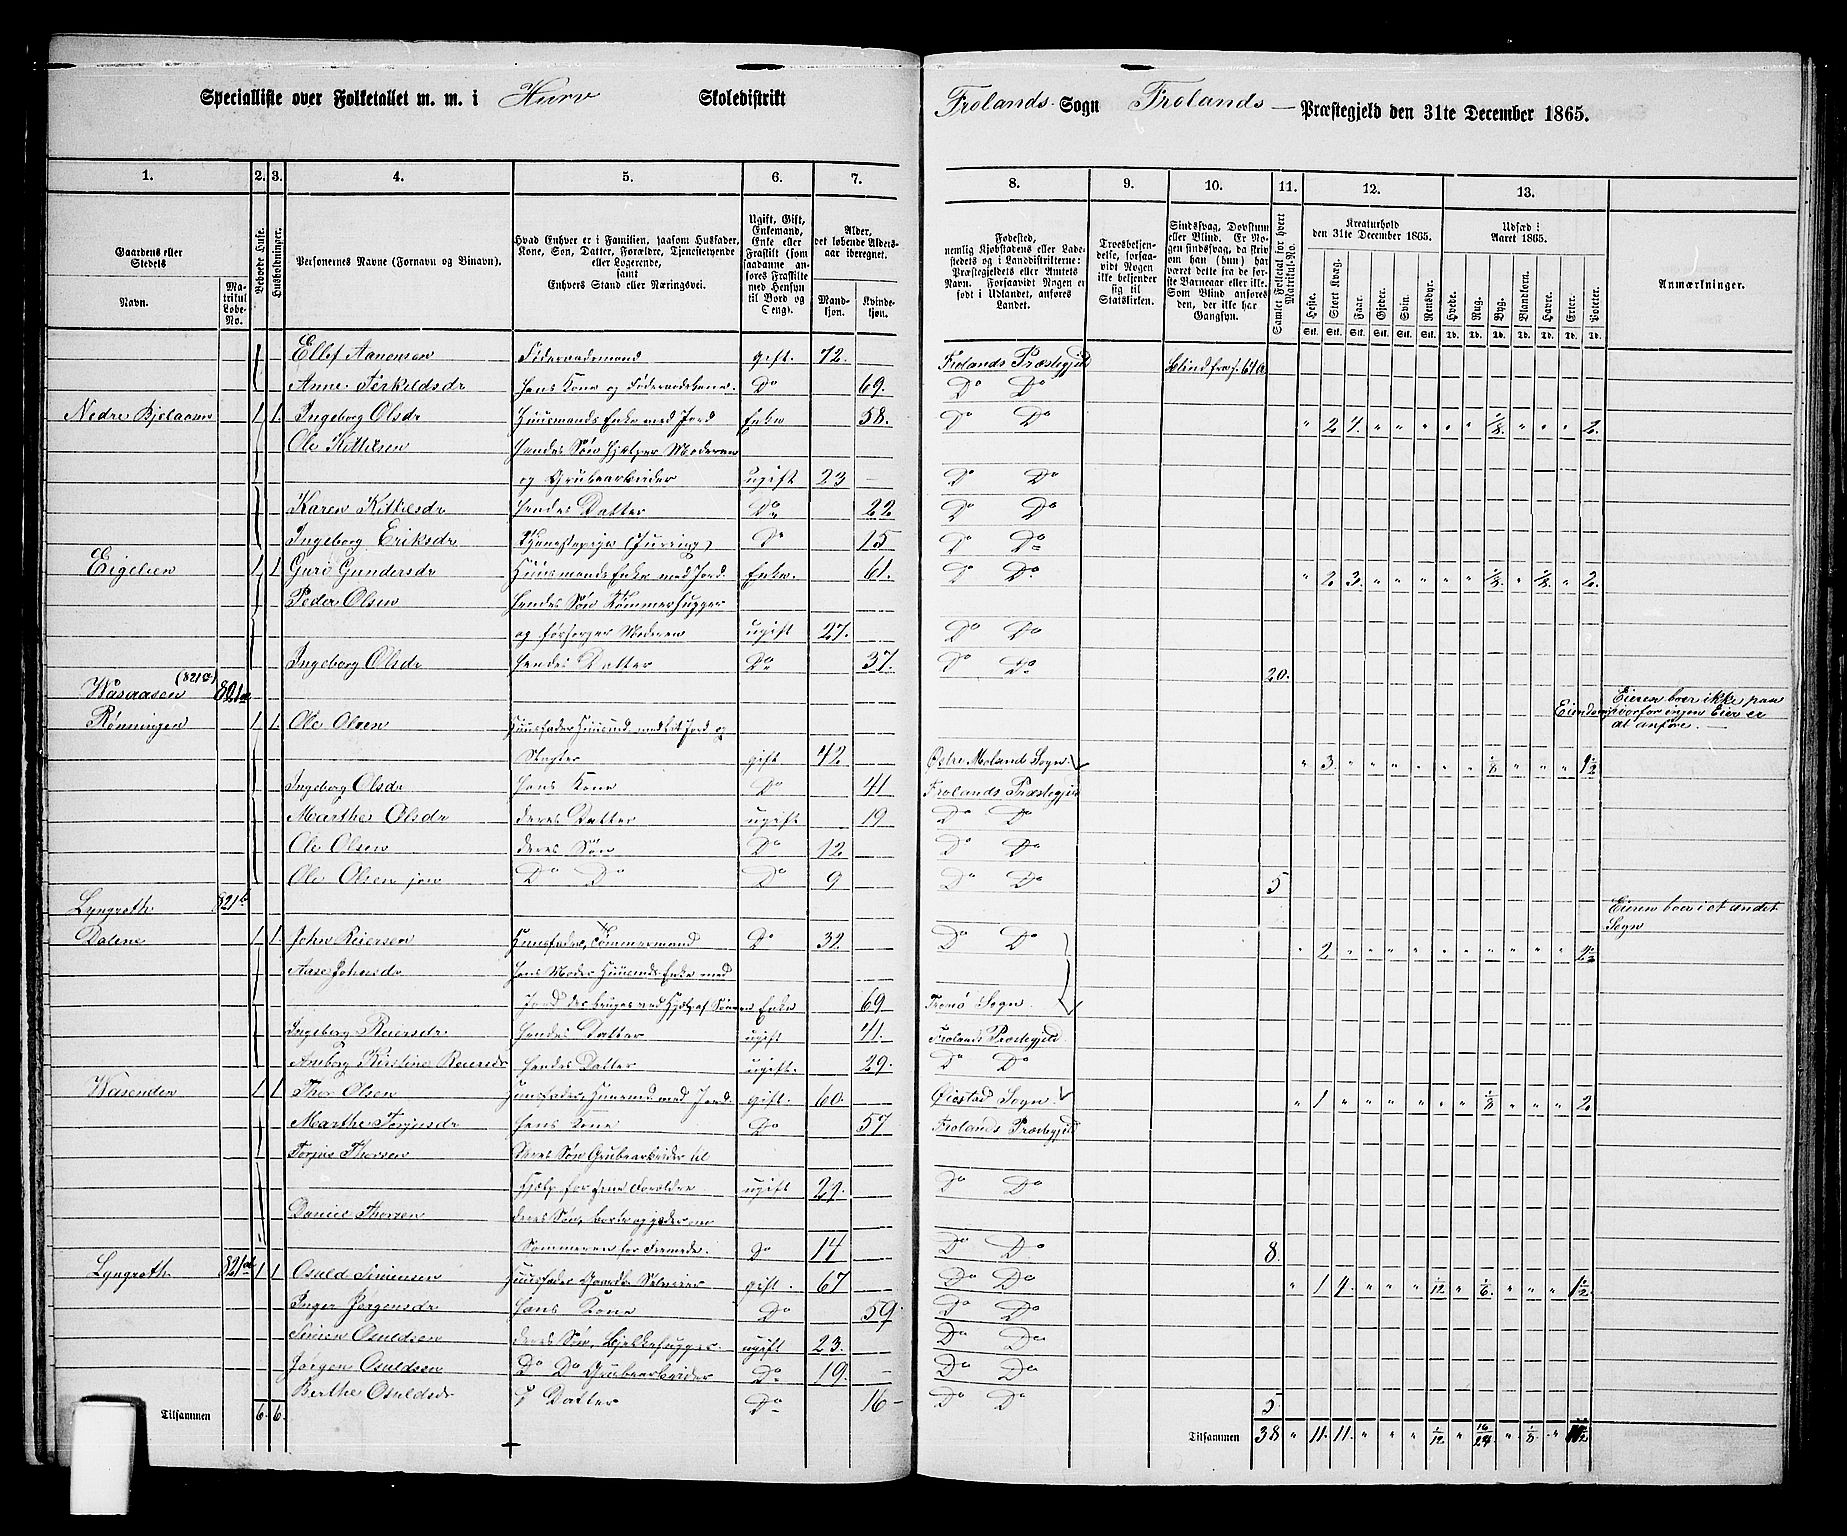 Specialliste over Folketallet m. m. i Hurv Skoledistrikt
Frolands Sogn Frolands — Præstegjeld den 31te December 1865.
1. 2. 3. 4. 5. 6. 7. 8. 9. 10. 11. 12. 13.
Gaardens eller Stedets
Navn.
Matrikul Løbe-No.
Beboede Huse.
Husholdninger.
Personernes Navne (Fornavn og Binavn).
Hvad Enhver er i Familien, saasom Husfader, Kone, Søn, Datter, Forældre, Tjenestetyende eller Logerende, samt Enhvers Stand eller Næringsvei.
Ugift, Gift, Enkemand, Enke eller Fraskilt (som saadanne anføres Fraskilte med Hensyn til Bord og Seng).
Alder, det løbende Aldersaar iberegnet.
Mandkjøn. Kvindekjøn.
Fødested, nemlig Kjøbstadens eller Ladestedets og i Landdistrikterne: Præstegjeldets eller Amtets Navn. Forsaavidt Nogen er født i Udlandet, anføres Landet.
Troesbekjendelse, forsaavidt Nogen ikke bekjender sig til Statskirken.
Sindssvag, Døvstum eller Blind. Er Nogen sindssvag, da skrives om han (hun) har været dette fra de første Barneaar eller ikke. Som Blind anføres den, der ikke har Gangsyn.
Samlet Folketal for hvert Matrikul-No.
Kreaturhold den 31te December 1865.
Heste. Stort Kvæg. Faar. Gjeder. Svin. Rensdyr.
Udsæd i Aaret 1865.
Hvede. Rug. Byg. Blandkorn. Havre. Erter. Poteter.
Anmærkninger.
Ellef Aanensen Føderaadsmand gift. 72. Frolands Præstegjeld
Anne Terkildsdr hans Kone og Føderaadskone. Do 69. Do Do
Nedre Bjelaasen 1 1. Ingeborg Olsdr Huusmands Enke med Jord Enke 58. Do Do " 2 7. " " " " " 1/8 " " " 2.
Ole Kittilsen hendes Søn hjælper Moderen
og Grubearbeider ugift 23 — Do Do
Karen Kittilsdr hendes Datter Do 22 Do Do
Ingeborg Eriksdr Do 15 Do Do
Eigelien 1 1 Guro Gundersdr Huusmands Enke med Jord. Enke. 61. Do Do " 2 3. " " " " " 1/8 " 1/8 " 2.
Peder Olsen hendes Søn Tømmerhugger
og forsørger Moderen ugift 27. Do Do
Ingeborg Olsdr hendes Datter Do 37. Do Do 20.
Wasaasen (821a)
Eieren boer ikke paa
Eiendom hvorfor ingen Eier er
at anføre. —
Rønningen 1 1. Ole Olsen Huusfader Huusmd. med lidt Jord og
gift 42 Østre Moland Sogn. " 3. " " " " " " 1/8 " " " 1 1/2
Ingeborg Olsdr hans Kone Do 41 Frolands Præstegjeld
Marthe Olsdr deres Datter ugift 19 Do Do
Ole Olsen deres Søn Do 12 Do Do
Ole Olsen jun Do Do Do 9 Do Do 5
Lyngroth. 821b
Eieren boer i et andet
Sogn
Dalene 1 1. John Reiersen Huusfader, Tømmermand Do 32. Do Do " 2 " " " " " " " " " "
Aase Johnsdr hans Moder Huusmds Enke med
Jord der bruges ved Hjælp af Sønnen Enke 69 Tromø Sogn.
Ingeborg Reiersdr. hendes Datter ugift 41. Frolands Præstegjeld.
Anborg Kirstine Reiersdr hendes Datter ugift. 29. Do Do
Wasenden 1 1 Thor Olsen Huusfader. Huusmd. med Jord. gift. 60. Øiestad Sogn. " 1 " " " " " " 1/8 " " " 2
Marthe Torjusdr hans Kone Do 57 Frolands Præstegjeld
Torjus Thorsen deres Søn Grubearbeider til
Hjælp for sine Forældre ugift 29. Do Do
Daniel Thorsen deres Søn,
Sommeren for Fremede. Do 14 Do Do 8.
Lyngroth 1 1 Osuld Simensen Huusfader Gaardbr. Selveier gift. 67 Do Do " 1 4. " " " 1/12 " 1/6. " " " 1 1/2
Inger Jørgensdr hans Kone Do 59. Do Do
Simen Osuldsen deres Søn, Bjelkehugger ugift 23. Do Do
Jørgen Osuldsen Do Do Grubearbeider Do 19. Do Do
Berthe Osuldsdr " Datter Do 16 Do Do 5
Tilsammen 6. 6. Tilsammen 38 " 11. 11. " " " 1/12 " 16/24 " 1/8 "